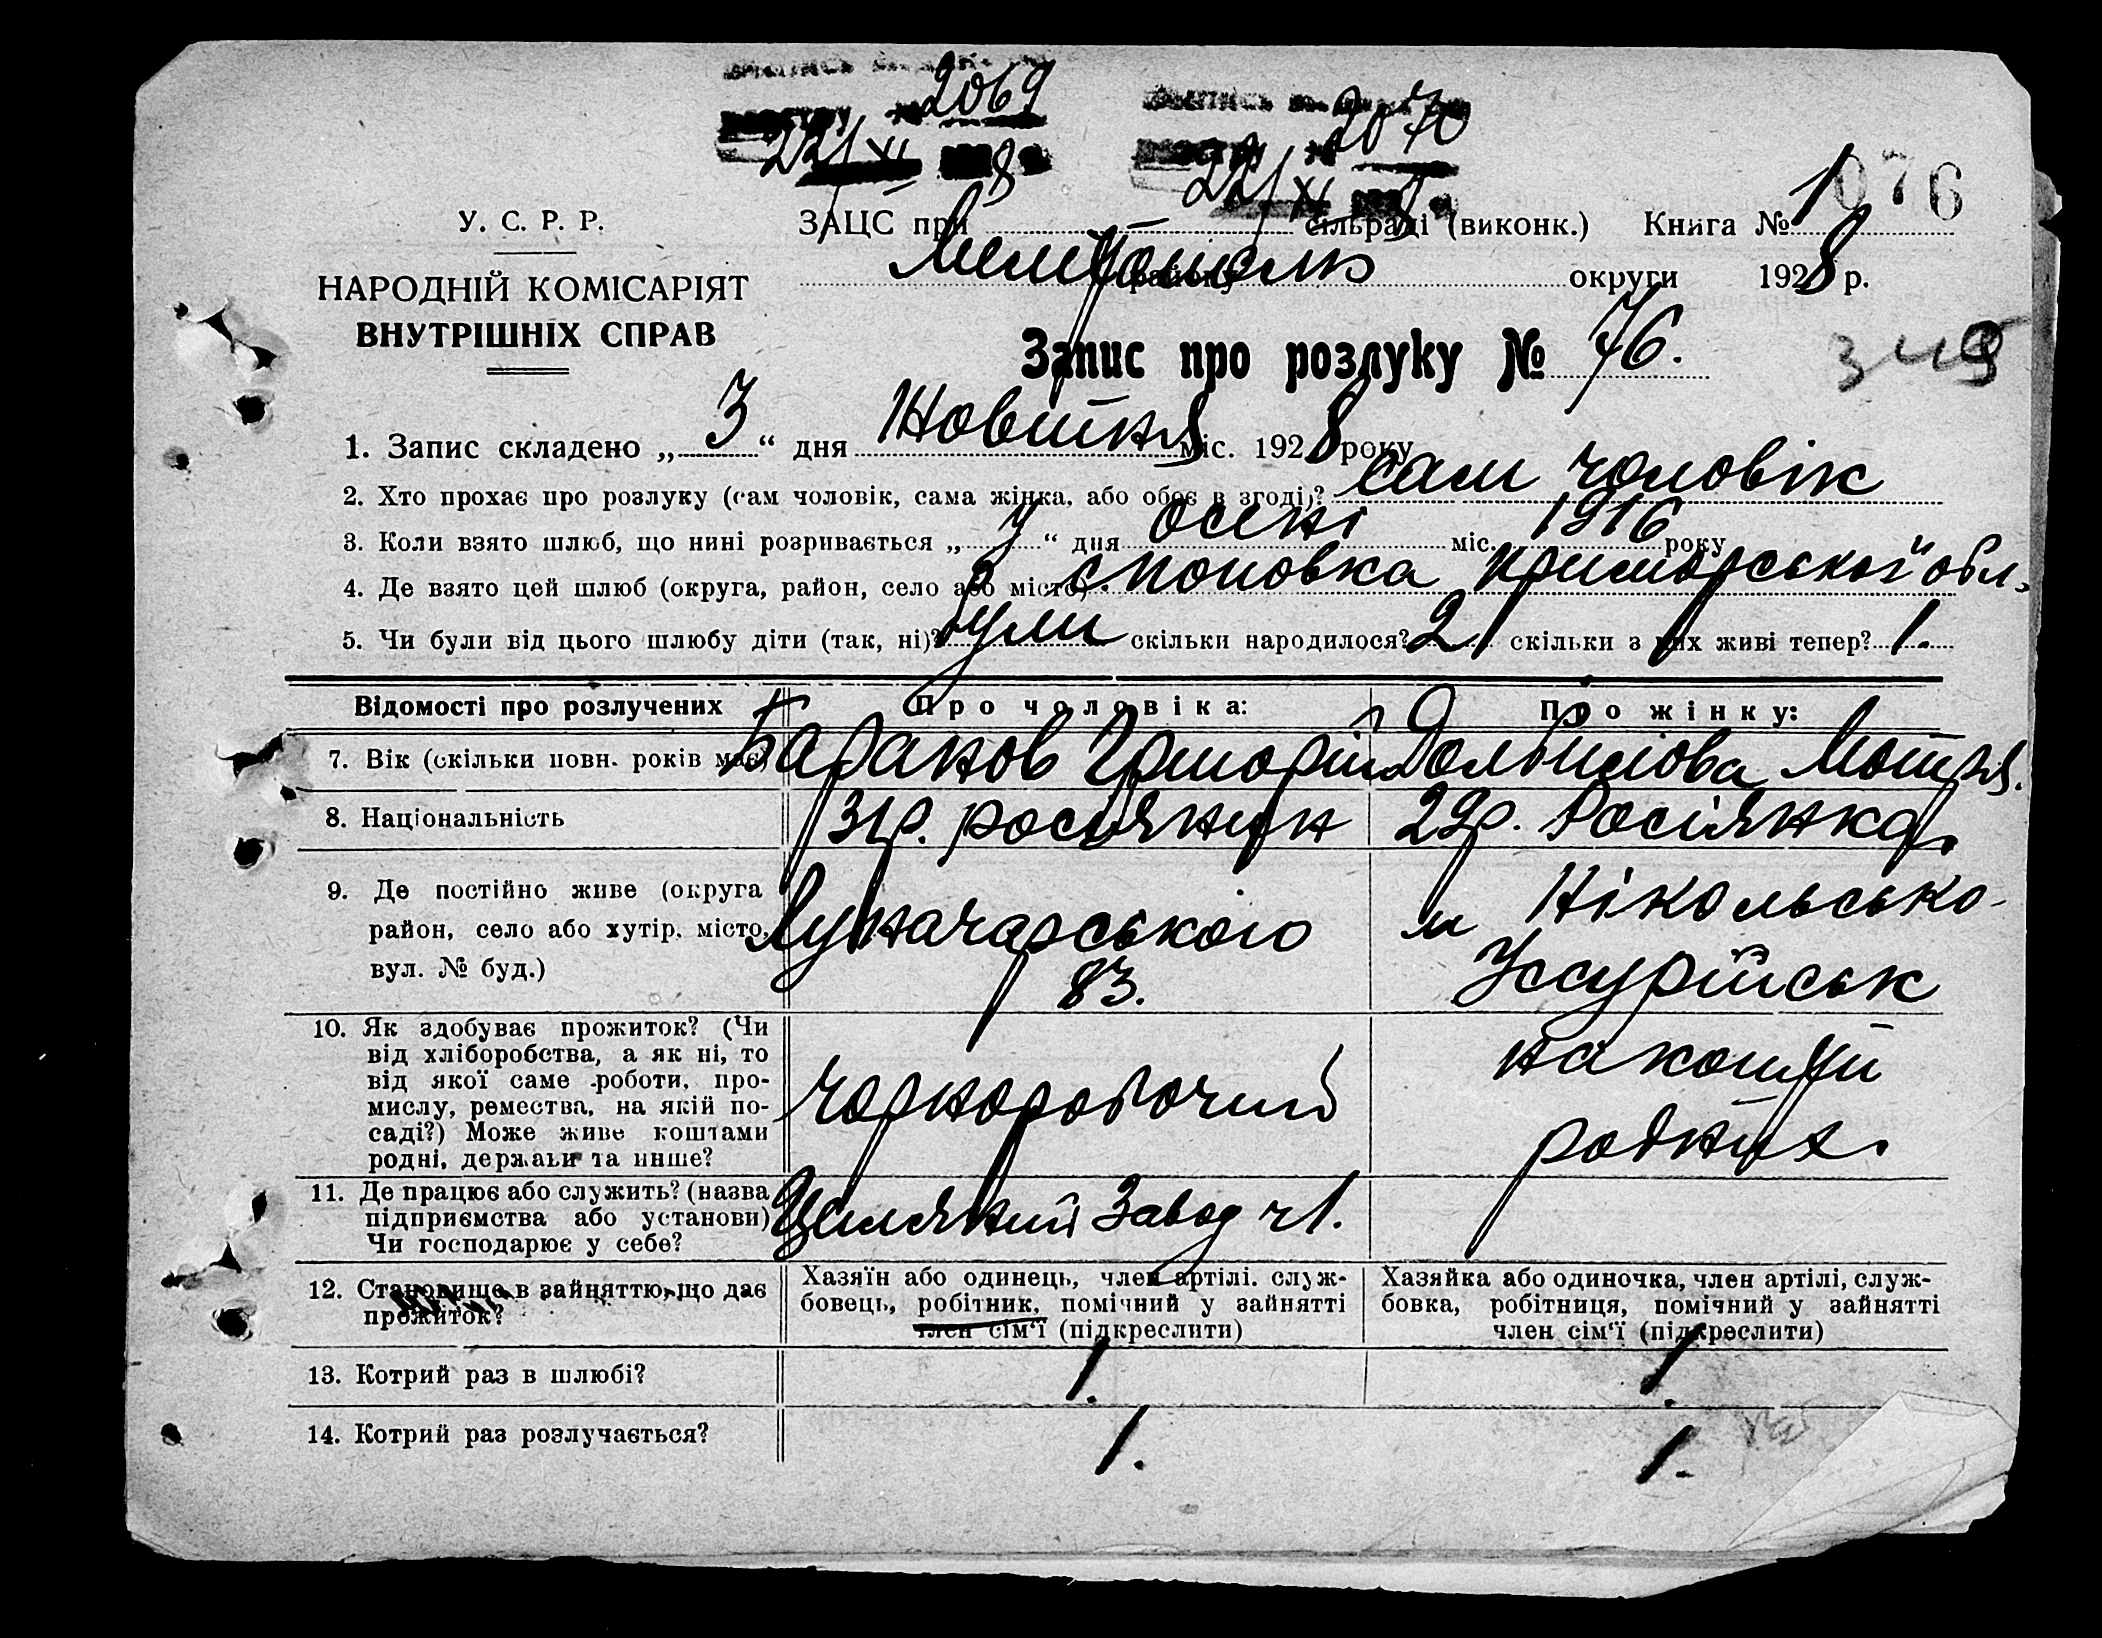 2069
22/XI 8
2070
22/XI 8
1076
У. С. Р. Р.
НАРОДНІЙ КОМІСАРІЯТ
ВНУТРІШНІХ СПРАВ
ЗАЦС при сільраді (виконк.) Книга № 1
району округи 1928 р.
Запис про розлуку № 76.
349
1. Запис складено „3“ дня Жовтня міс. 1928 року
2. Хто прохає про розлуку (сам чоловік, сама жінка, або обоє в згоді)? сам чоловік
3. Коли взято шлюб, що нині розривається „у“ дня осені міс. 1916 року
4. Де взято цей шлюб (округа, район, село або місто) Приморської обл.
5. Чи були від цього шлюбу діти (так, ні)? були скільки народилося? 2 скільки з них живі тепер? 1.
Відомості про розлучених Про чоловіка: Про жінку:
7. Вік (скільки повн. років має) Баранов Григорій Мотря.
8. Національність 31р. росіянин 29р. Росіянка
9. Де постійно живе (округа
район, село або хутір, місто,
вул. № буд.)
Луначарського
83.
м Нікольсько-
Уссурійськ
10. Як здобуває прожиток? (Чи
від хліборобства, а як ні, то
від якої саме роботи, про-
мислу, ремества, на якій по-
саді?) Може живе коштами
родні, держави та инше?
Чорноробочий
на кошти
родних.
11. Де працює або служить? (назва
підприємства або установи)
Чи господарює у себе?
Завод ч 1.
12. Становище в зайняттю, що дає
прожиток?
Хазяїн або одинець, член артілі, служ-
бовець, робітник, помічний у зайнятті
член сім'ї (підкреслити)
Хазяйка або одиночка, член артілі, служ-
бовка, робітниця, помічний у зайнятті
член сім'ї (підкреслити)
13. Котрий раз в шлюбі? 1. 1.
14. Котрий раз розлучається? 1. 1.